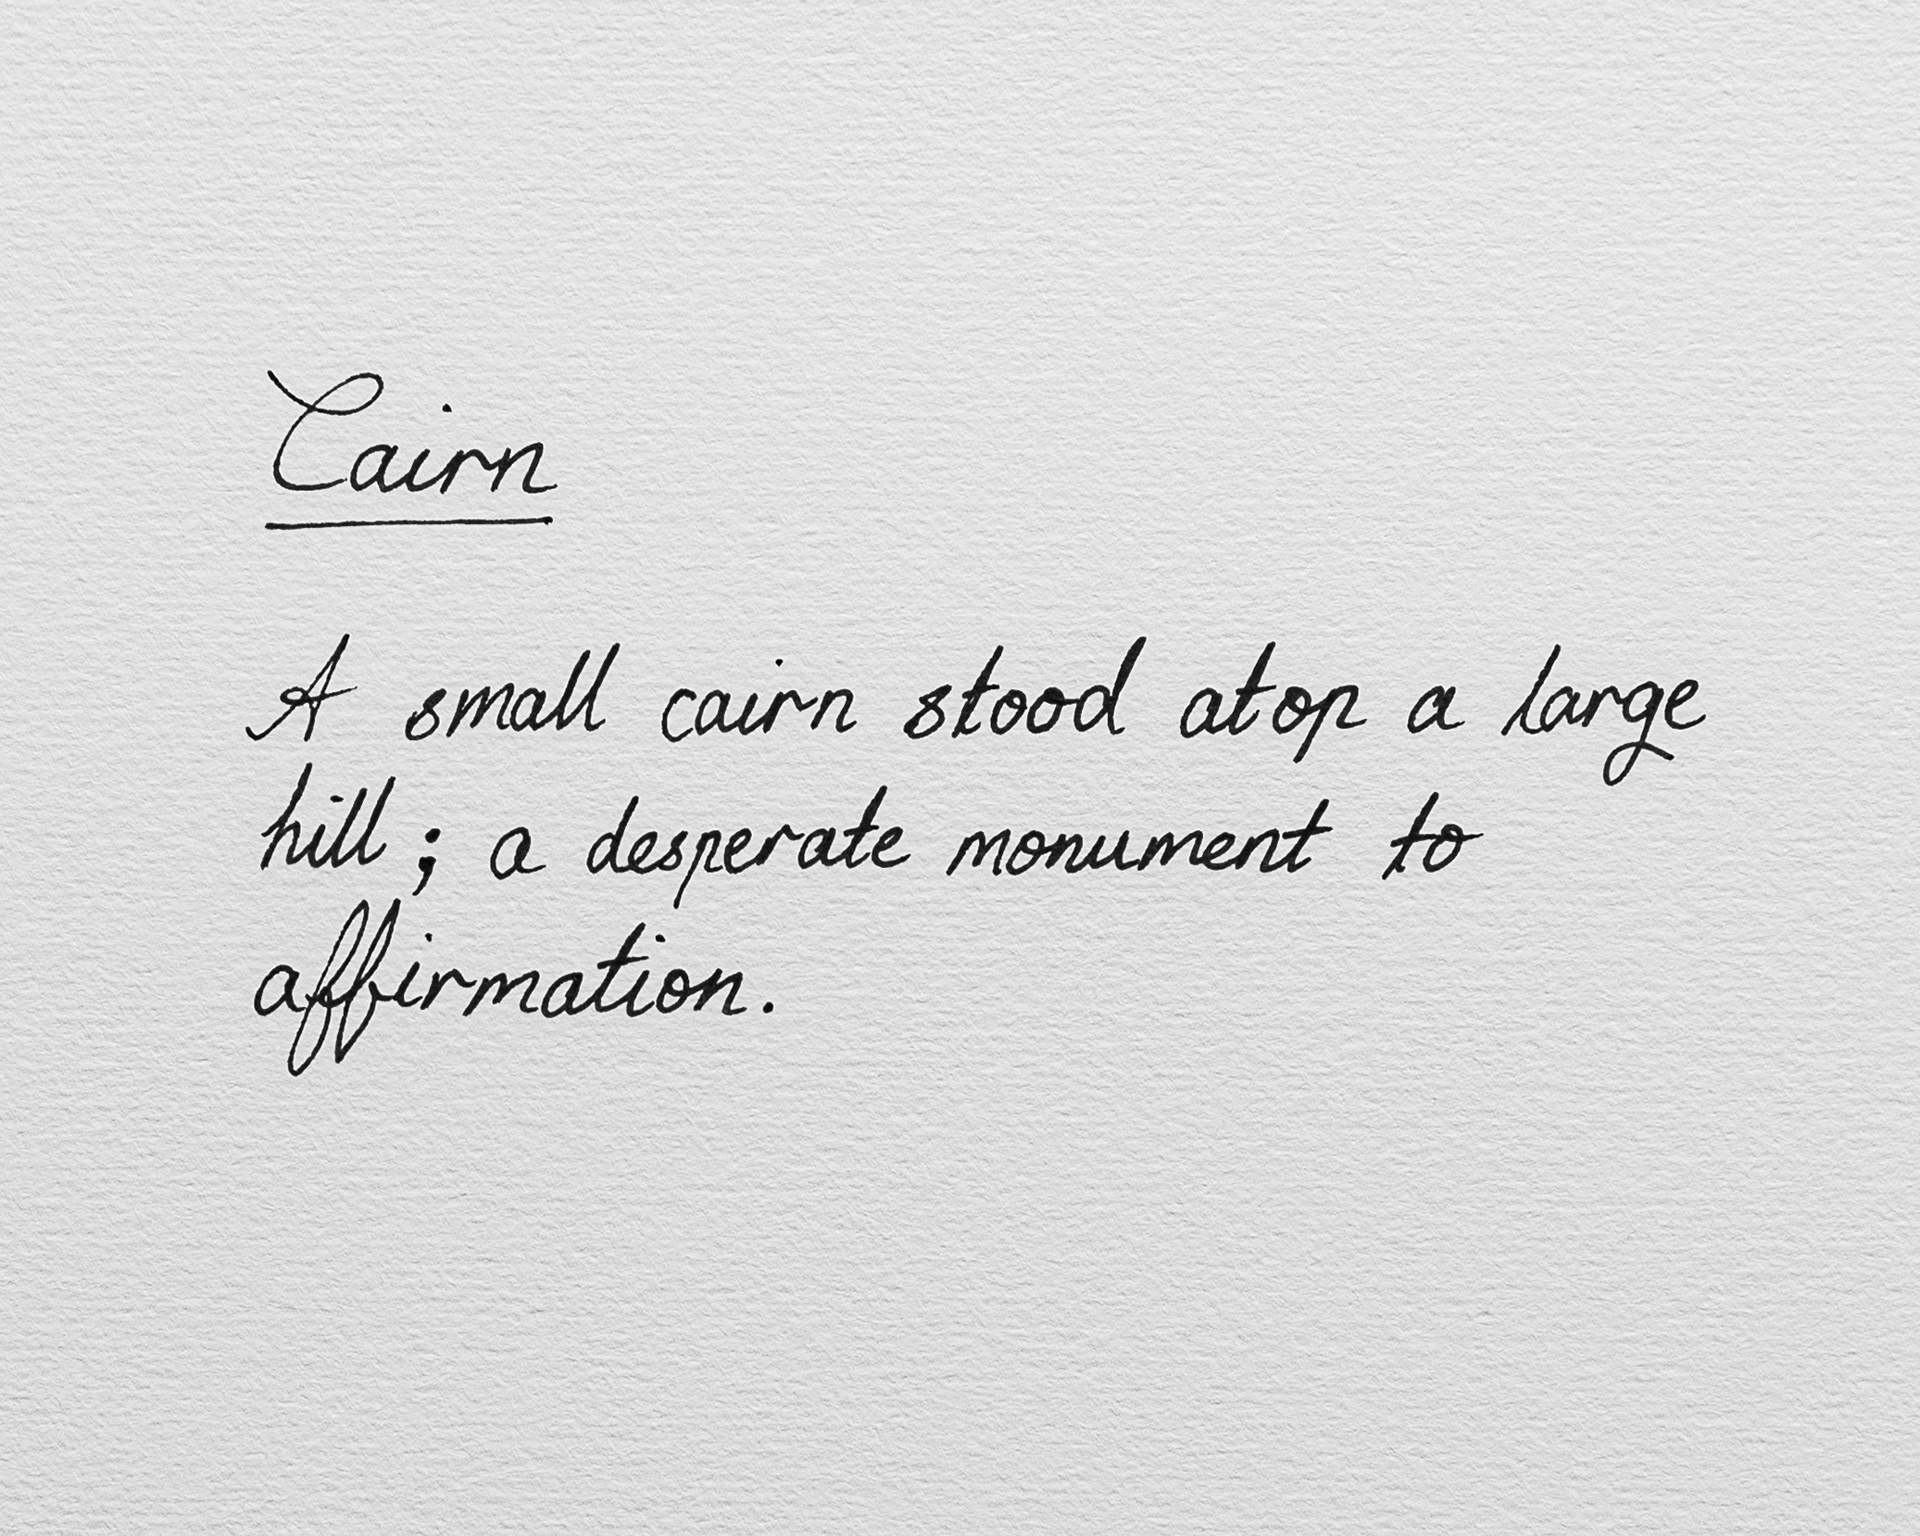 Cairn
A small cairn stood atop a large
hill; a desperate monument to
affirmation.